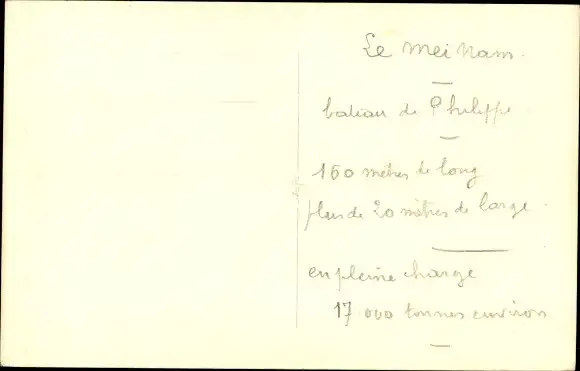 Le Mei Nam.
bateau de Philippe
160 mètres de long
plus de 20 mètres de large.
en pleine charge
17 000 tonnes environ